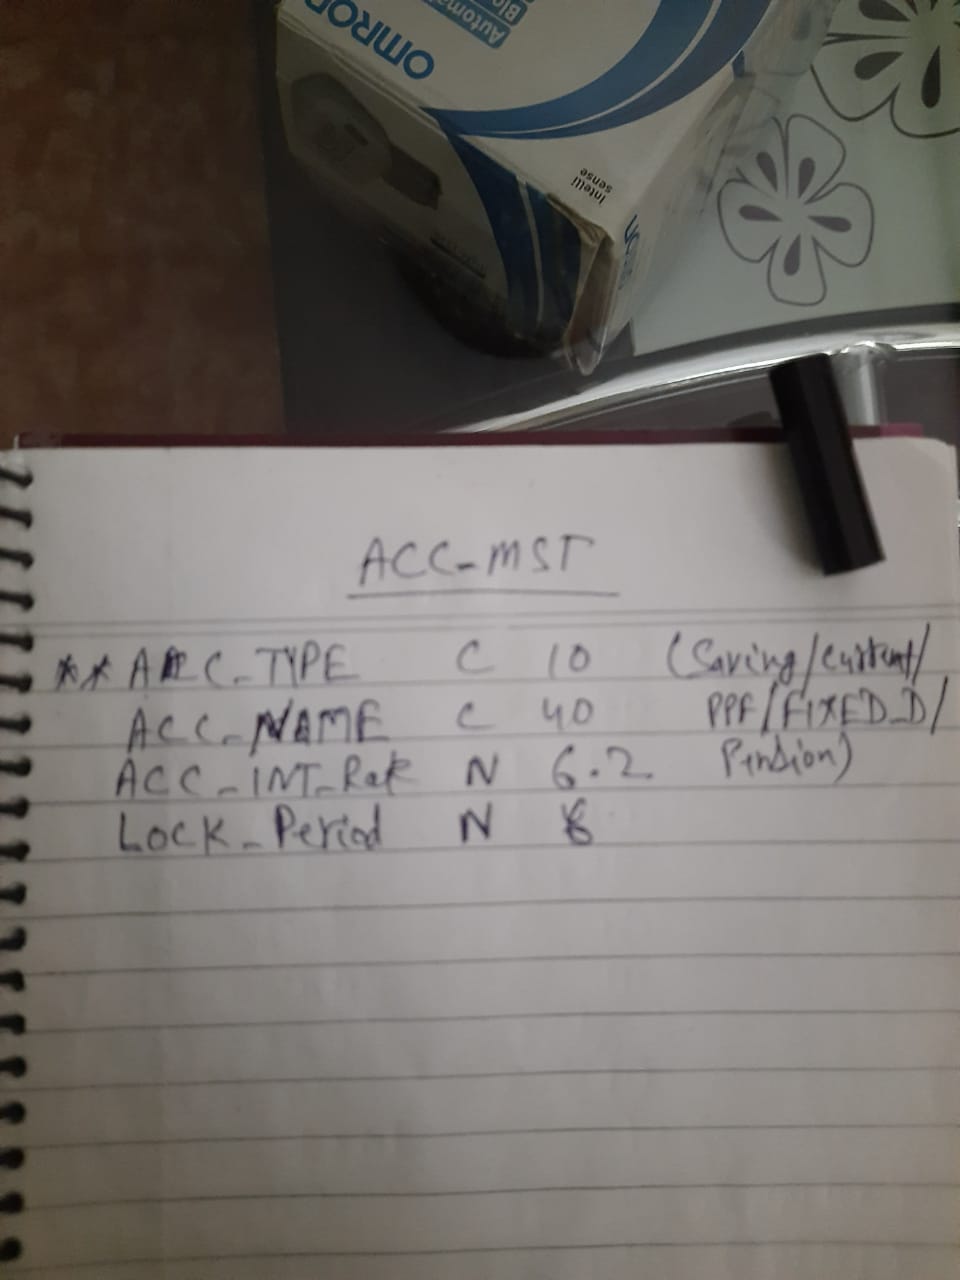 OMRON
Automa
Blo
intelli
sense
ACC-MST
** ACC-TYPE C 10 (Saving/Current/
ACC-NAME C 40 PPF/FIXED-D/
ACC-INT-Rate N 6.2 Pension)
LOCK-Period N 8